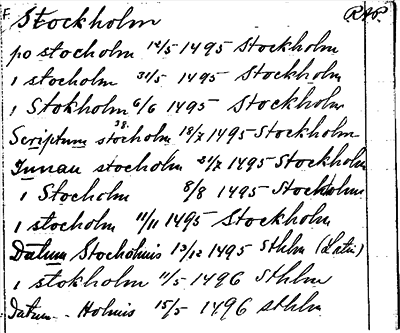 F. Stockholm RAP.
po stocholm 12/5 1495 Stockholm
i stocholm 31/5 1495 Stockholm
i Stokholm 6/6 1495 Stockholm
Scriptum stocholm 18/7 1495 Stockholm
Innan stocholm 21/7 1495 Stockholm
i Stocholm 8/8 1495 Stockholm
i stocholm 11/11 1495 Stockholm
Datum Stocholmis 13/12 1495 Sthlm (Latin)
i stokholm 11/5 1496 Sthlm
Datum - Holmis 15/5 1496 sthlm